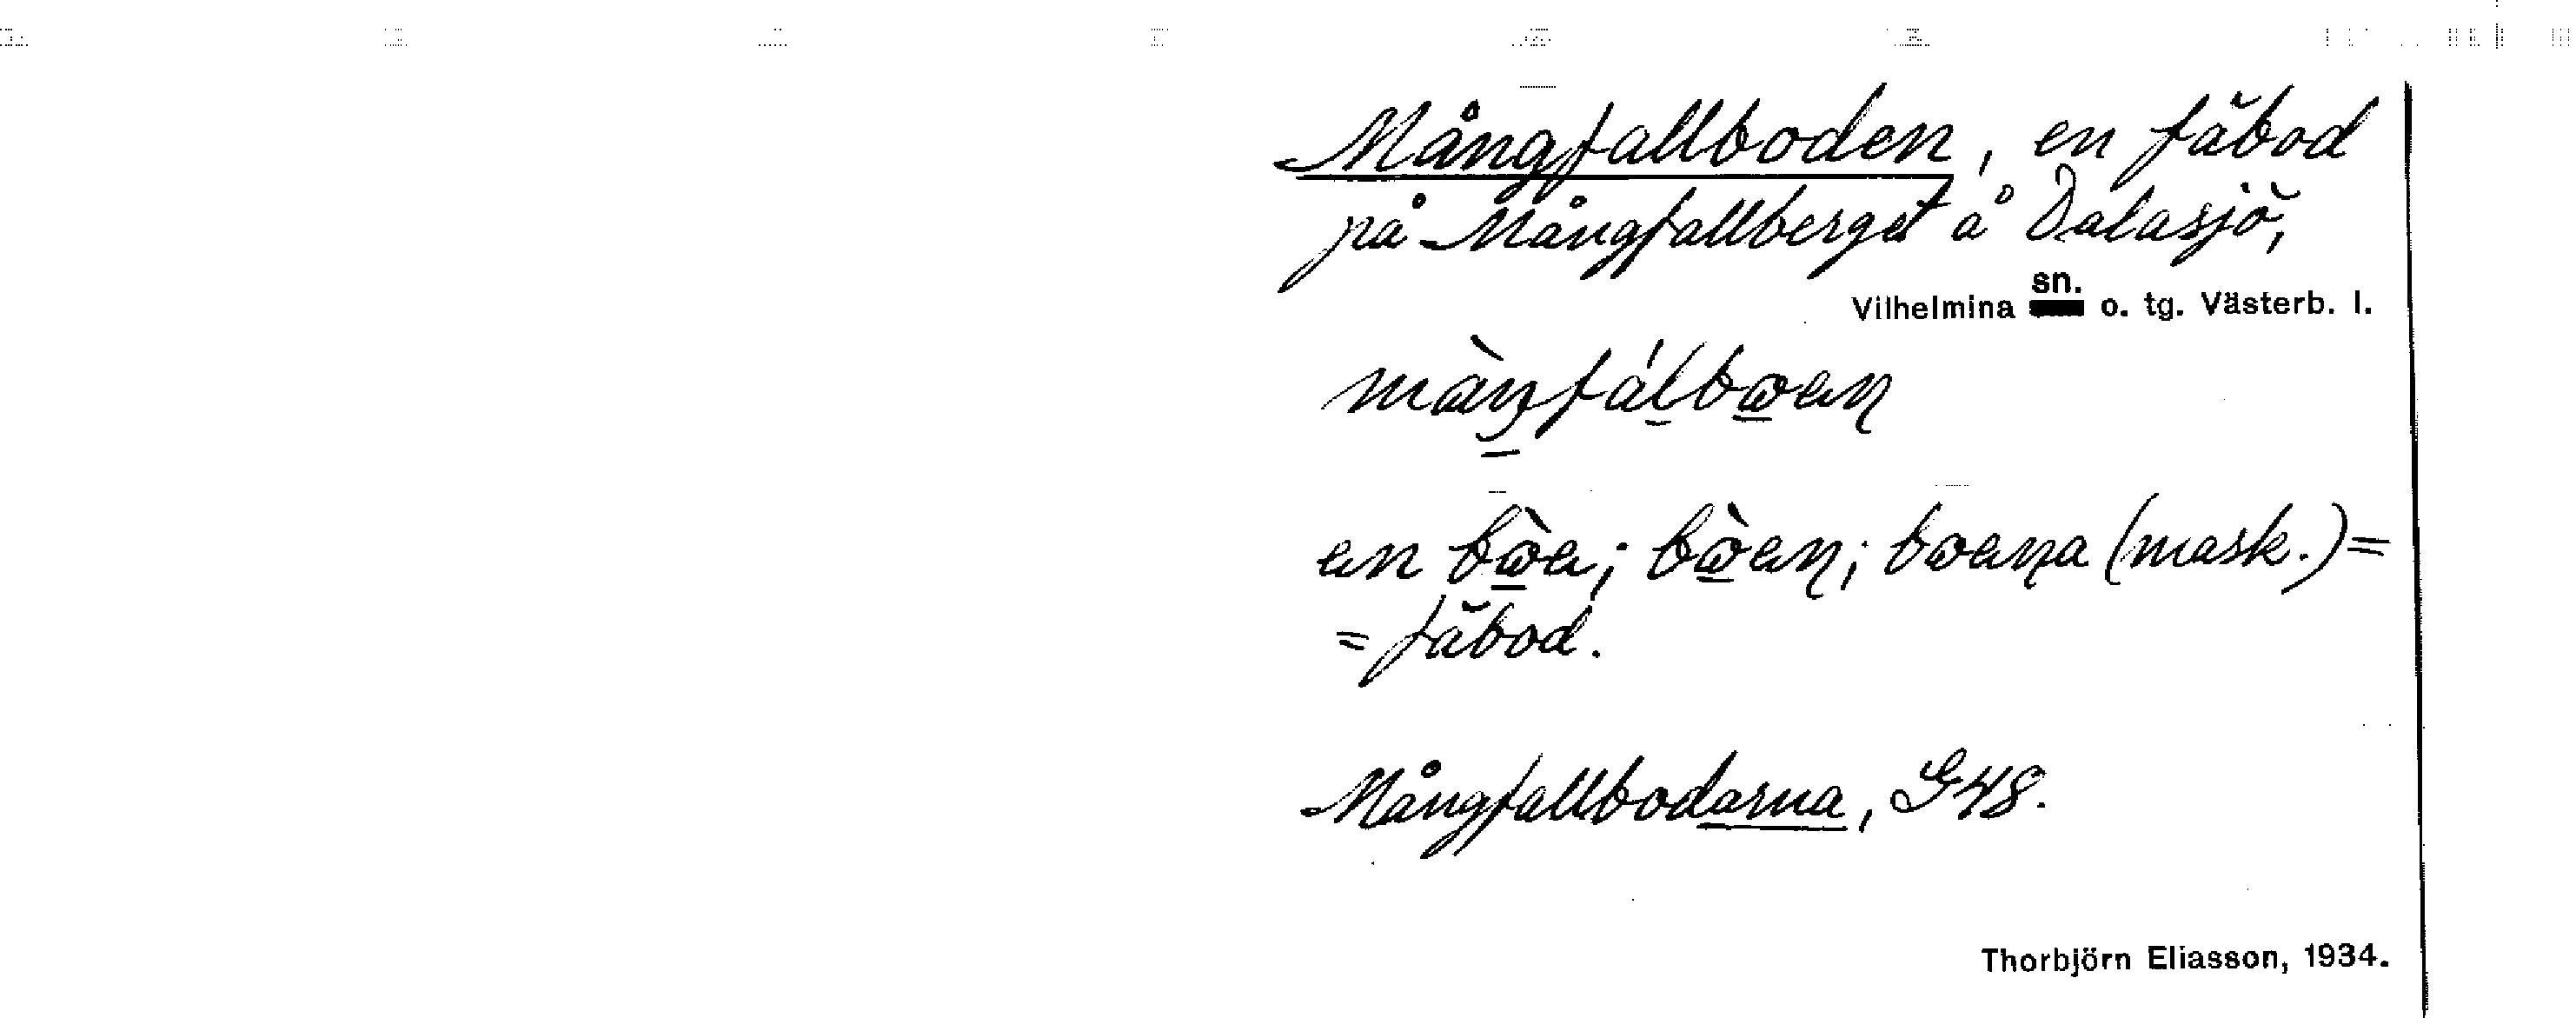 Mångfallboden, en fäbod
på Mångfallberget å Dalasjö,
sn.
Vilhelmina o. tg. Västerb. l.
màŋfálbωen
en bὼe; bὼen; bωena (mask.)=
= fäbod.
Mångfallbodarna, G48.
Thorbjörn Eliasson, 1934.